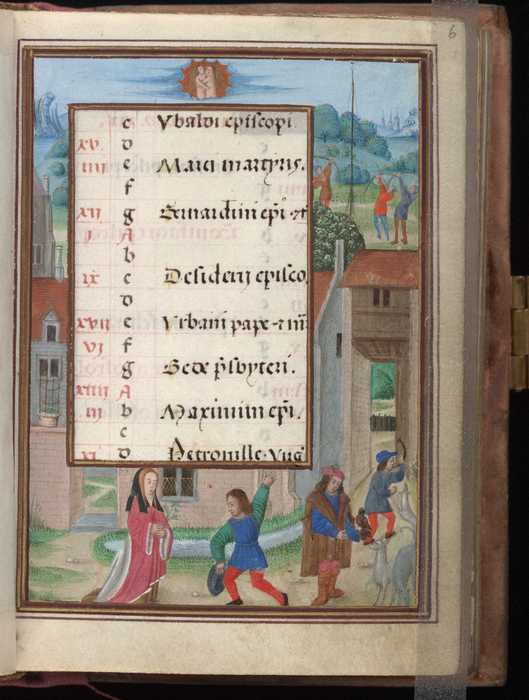 6
c Vbaldi episcopi.
xv. d
iiii e Marci martyris.
f
xii g Bernardini ep̄i · ⁊ ɔf
i A
b
ix c Desiderij episco.
d
xvii e Vrbani pape · ⁊ m̄
vi f
g Bede p̄sbyteri.
xiiii A
iii b Maximini ep̄i.
c
xi d Petronille · Virḡ